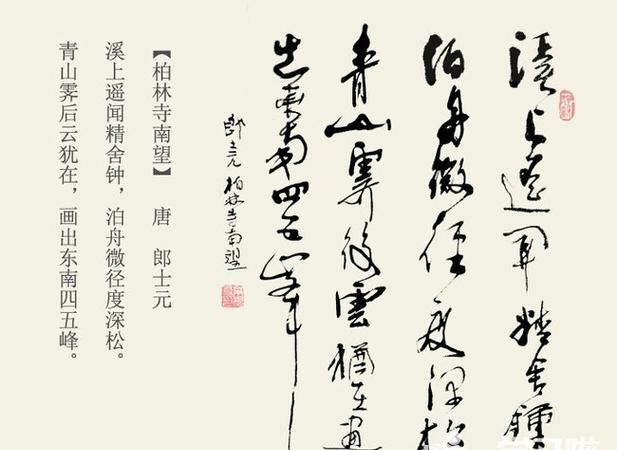 溪上遥聞精舍鐘
泊舟微徑度深松
青山霽後雲猶在畫
出東南四五峯
郎士元柏林寺南望
【柏林寺南望】 唐 郎士元
溪上遥闻精舍钟，泊舟微径度深松。
青山霁后云犹在，画出东南四五峰。